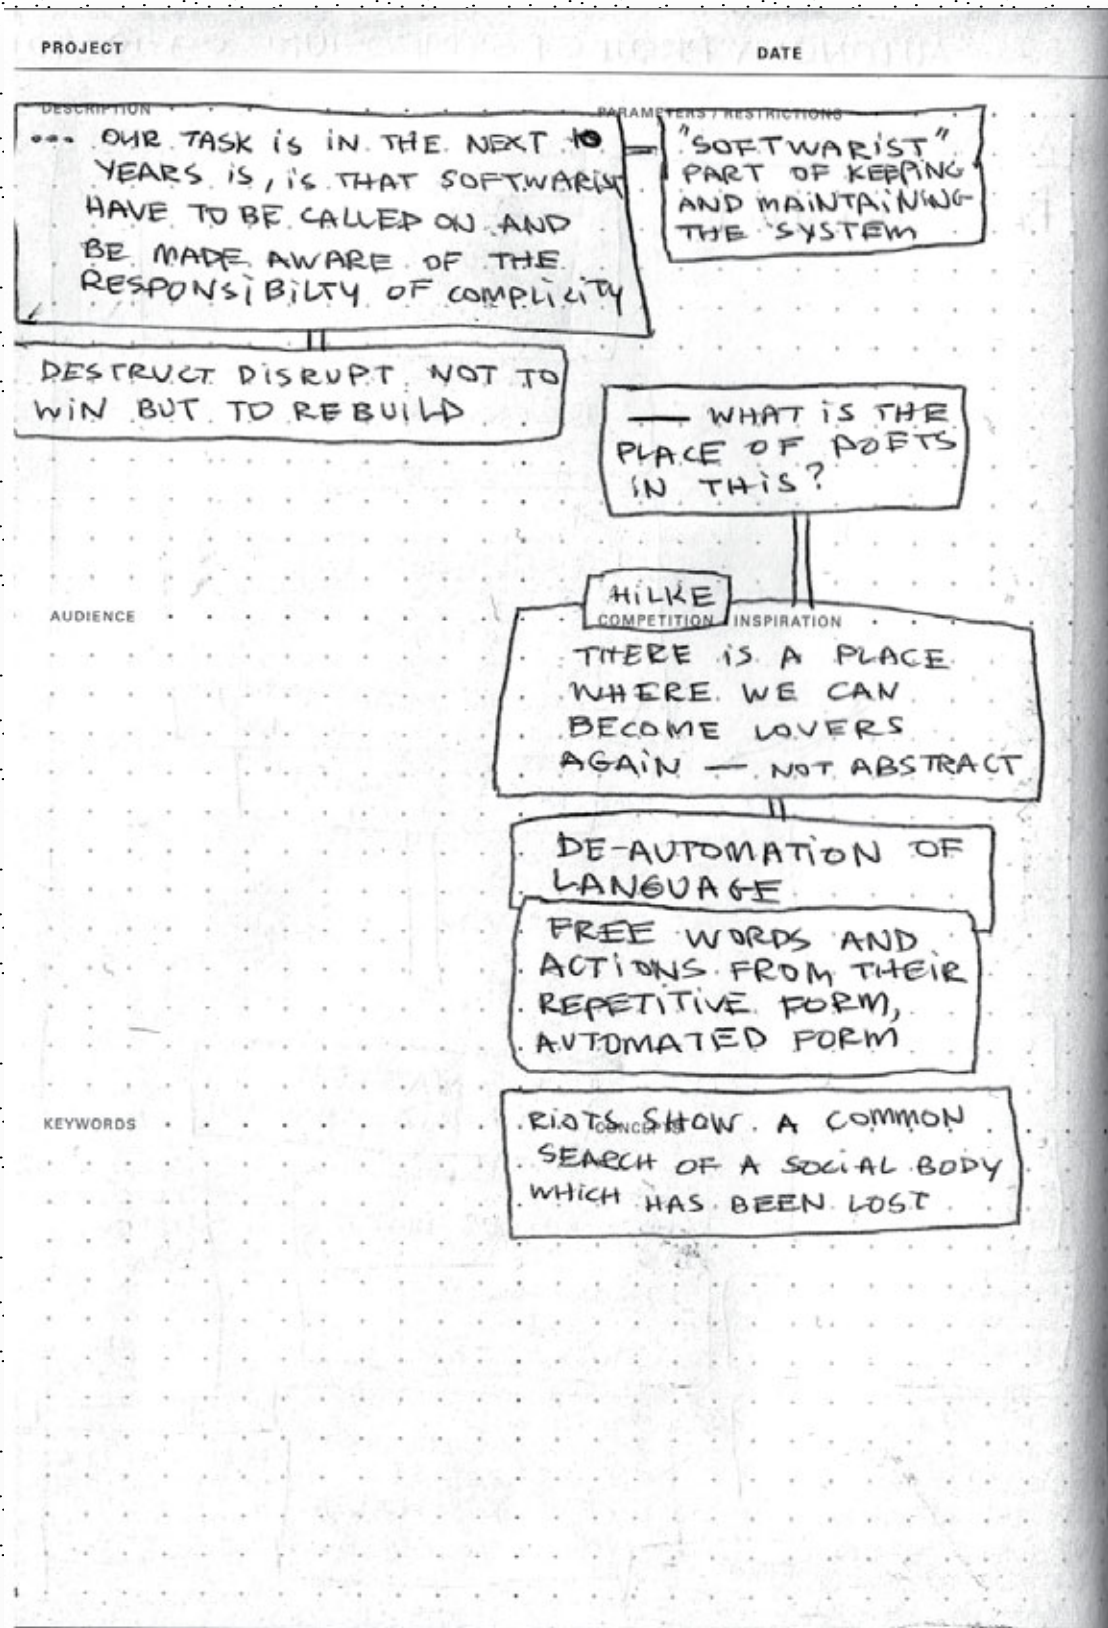 PROJECT
DATE
DESCRIPTION
PARAMETERS / RESTRICTIONS
... OUR TASK IS IN THE NEXT 10
YEARS IS, IS THAT SOFTWARIST
HAVE TO BE CALLED ON AND
BE MADE AWARE OF THE
RESPONSIBILTY OF COMPLICITY
"SOFTWARIST"
PART OF KEEPING
AND MAINTAINING
THE SYSTEM
DESTRUCT DISRUPT NOT TO
WIN BUT TO REBUILD
— WHAT IS THE
PLACE OF POETS
IN THIS?
AUDIENCE
HILKE
COMPETITION / INSPIRATION
THERE IS A PLACE
WHERE WE CAN
BECOME LOVERS
AGAIN — NOT ABSTRACT
DE-AUTOMATION OF
LANGUAGE
FREE WORDS AND
ACTIONS FROM THEIR
REPETITIVE FORM,
AUTOMATED FORM
KEYWORDS
CONCEPTS
RIOTS SHOW A COMMON
SEARCH OF A SOCIAL BODY
WHICH HAS BEEN LOST